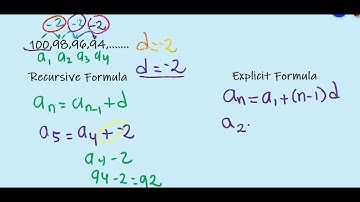 -2 -2 -2
100,98,96,94,........
a₁ a₂ a₃ a₄
d=-2
d=-2
Recursive Formula
aₙ=aₙ₋₁+d
a₅=a₄+-2
a₄-2
94-2=92
Explicit Formula
aₙ=a₁+(n-1)d
a₂.